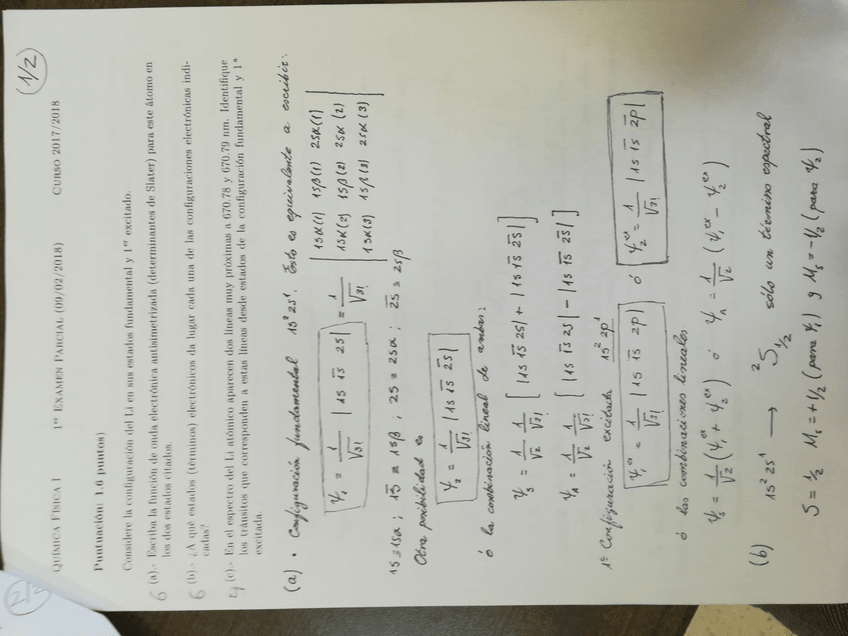 (1/2)
2/2
QUÍMICA FÍSICA I 1er EXAMEN PARCIAL (09/02/2018) CURSO 2017/2018
Puntuación: 1,6 puntos)
Considere la configuración del Li en sus estados fundamental y 1er excitado.
6 (a).- Escriba la función de onda electrónica antisimetrizada (determinantes de Slater) para este átomo en
los dos estados citados.
6 (b).- ¿A qué estados (términos) electrónicos da lugar cada una de las configuraciones electrónicas indi-
cadas?
4 (c).- En el espectro del Li atómico aparecen dos líneas muy próximas a 670.78 y 670.79 nm. Identifique
los tránsitos que corresponden a estas líneas desde estados de la configuración fundamental y 1ª
excitada.
(a) • Configuración fundamental 1s² 2s¹. Esto es equivalente a escribir:
Ψ₁ = 1/√3! |1s 1s̄ 2s| = 1/√3! | 1sα(1) 1sβ(1) 2sα(1) |
| 1sα(2) 1sβ(2) 2sα(2) |
| 1sα(3) 1sβ(3) 2sα(3) |
1s ≡ 1sα ; 1s̄ ≡ 1sβ ; 2s ≡ 2sα ; 2s̄ ≡ 2sβ
Otra posibilidad es
Ψ₂ = 1/√3! |1s 1s̄ 2s̄|
ó la combinación lineal de ambas:
Ψs = 1/√2 1/√3! [ |1s 1s̄ 2s| + |1s 1s̄ 2s̄| ]
ΨA = 1/√2 1/√3! [ |1s 1s̄ 2s| - |1s 1s̄ 2s̄| ]
1ª Configuración excitada 1s² 2p¹
Ψ₁ᵉˣ = 1/√3! |1s 1s̄ 2p| ó Ψ₂ᵉˣ = 1/√3! |1s 1s̄ 2p̄|
ó las combinaciones lineales
Ψs = 1/√2 (Ψ₁ᵉˣ + Ψ₂ᵉˣ) ó ΨA = 1/√2 (Ψ₁ᵉˣ - Ψ₂ᵉˣ)
(b) 1s² 2s¹ → ²S₁/₂ sólo un término espectral
S = 1/2 Ms = +1/2 (para Ψ₁) y Ms = -1/2 (para Ψ₂)